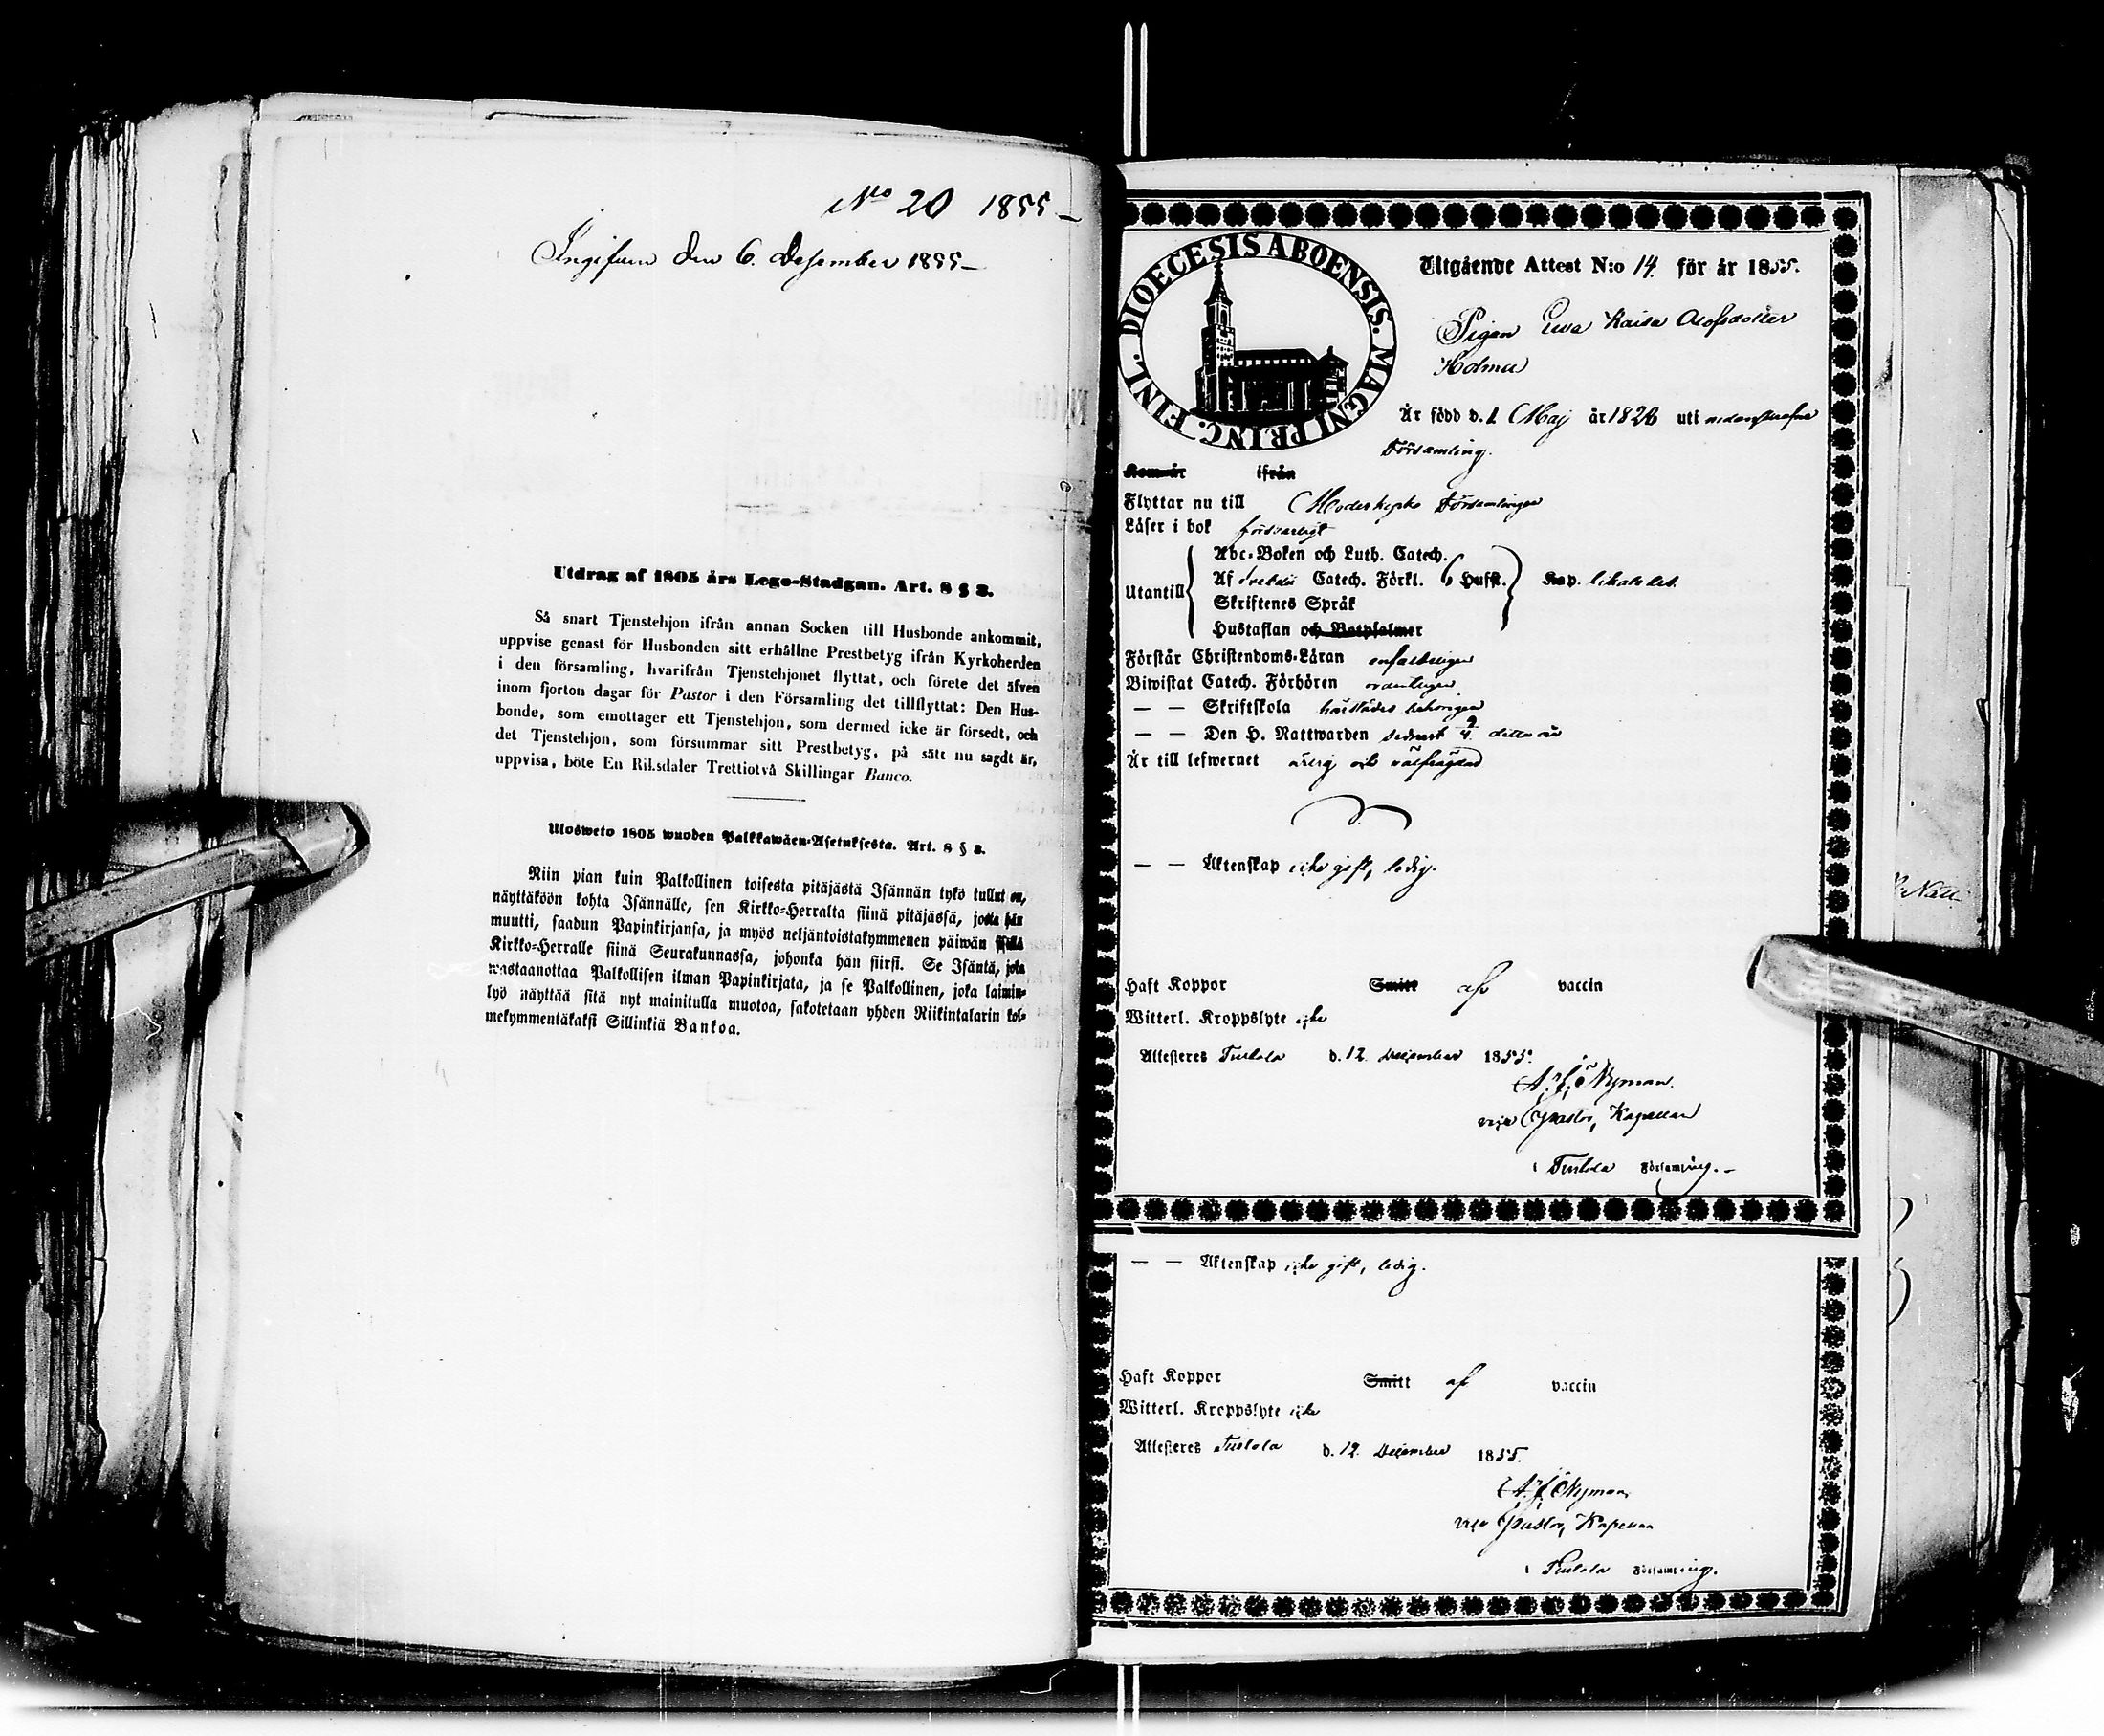 No 20 1855 –
Ingifven den 6. December 1855 –
Utdrag af 1805 års Lego-Stadgan. Art. 8 § 3.
Så snart Tjenstehjon ifrån annan Socken till Husbonde ankommit,
uppvise genast för Husbonden sitt erhållne Prestbetyg ifrån Kyrkoherden
i den församling, hvarifrån Tjenstehjonet flyttat, och förete det äfven
inom fjorton dagar för Pastor i den Församling det tillflyttat: Den Hus-
bonde, som emottager ett Tjenstehjon, som dermed icke är försedt, och
det Tjenstehjon, som försummar sitt Prestbetyg, på sätt nu sagdt är,
uppvisa, böte En Riksdaler Trettiotvå Skillingar Banco.
Ulosweto 1805 wuoden Palkkawäen-Asetuksesta. Art. 8 § 3.
Niin pian kuin Palkollinen toisesta pitäjästä Isännän tykö tullut on,
näyttäköön kohta Isännälle, sen Kirkko-Herralta siinä pitäjässä, josta hän
muutti, saadun Papinkirjansa, ja myös neljäntoistakymmenen päiwän sisällä
Kirkko-Herralle siinä Seurakunnassa, johonka hän siirsi. Se Isäntä, joka
wastaanottaa Palkollisen ilman Papinkirjata, ja se Palkollinen, joka laimin-
lyö näyttää sitä nyt mainitulla muotoa, sakotetaan yhden Riikintalarin kol-
mekymmentäkaksi Sillinkiä Bankoa.
FINL. DIOECESIS ABOENSIS. MAGNI PRINC.
Utgående Attest N:o 14. för år 1855.
Pigan Ewa Kaisa Olofsdotter
Holma
Är född d. 1 Maj år 1826 uti
Församling.
Kom år ifrån
Flyttar nu till Moderkyrko Församlingen
Läser i bok försvarligt
Abc-Boken och Luth. Catech.
Utantill Af Svebilii Catech. Förkl. 6 Hufst. Kap.
Skriftenes Språk
Hustaflan och Botpsalmer
Förstår Christendoms-Läran enfaldeligen
Biwistat Catech. Förhören ordentligen
— — Skriftskola härstädes behörigen
— — Den H. Nattwarden sednast 9/4 detta år
Är till lefwernet ärlig och välfrägdad
— — Äktenskap icke gift, ledig.
Haft Koppor Smitt af vaccin
Witterl. Kroppslyte icke
Attesteres Turtola d. 12. December 1855.
Nyman.
vice Pastor, Kapellan
i Turtola Församling. –
— — Äktenskap icke gift, ledig.
Haft Koppor Smitt af vaccin
Witterl. Kroppslyte icke
Attesteres Turtola d. 12. December 1855.
Nyman
vice Pastor, Kapellan
i Turtola Församling.